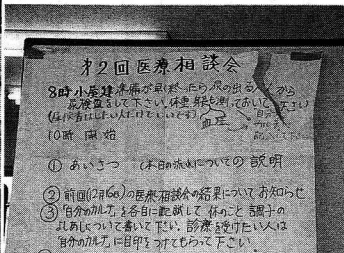 第2回医療相談会
8時 小屋建準備が早く終ったら尿の出る人から
尿検査をして下さい。体重 も測っておいて下さい
血圧
10時 開始
① あいさつ (本日の流れについての説明
② 前回(12月16日)の医療相談会の結果についてお知らせ
③ 「自分のカルテ」を各自に配試して 体のこと 調子の
よしあしについて書いて下さい。診療を受けたい人は
「自分のカルテ」に目印をつけてもらって下さい